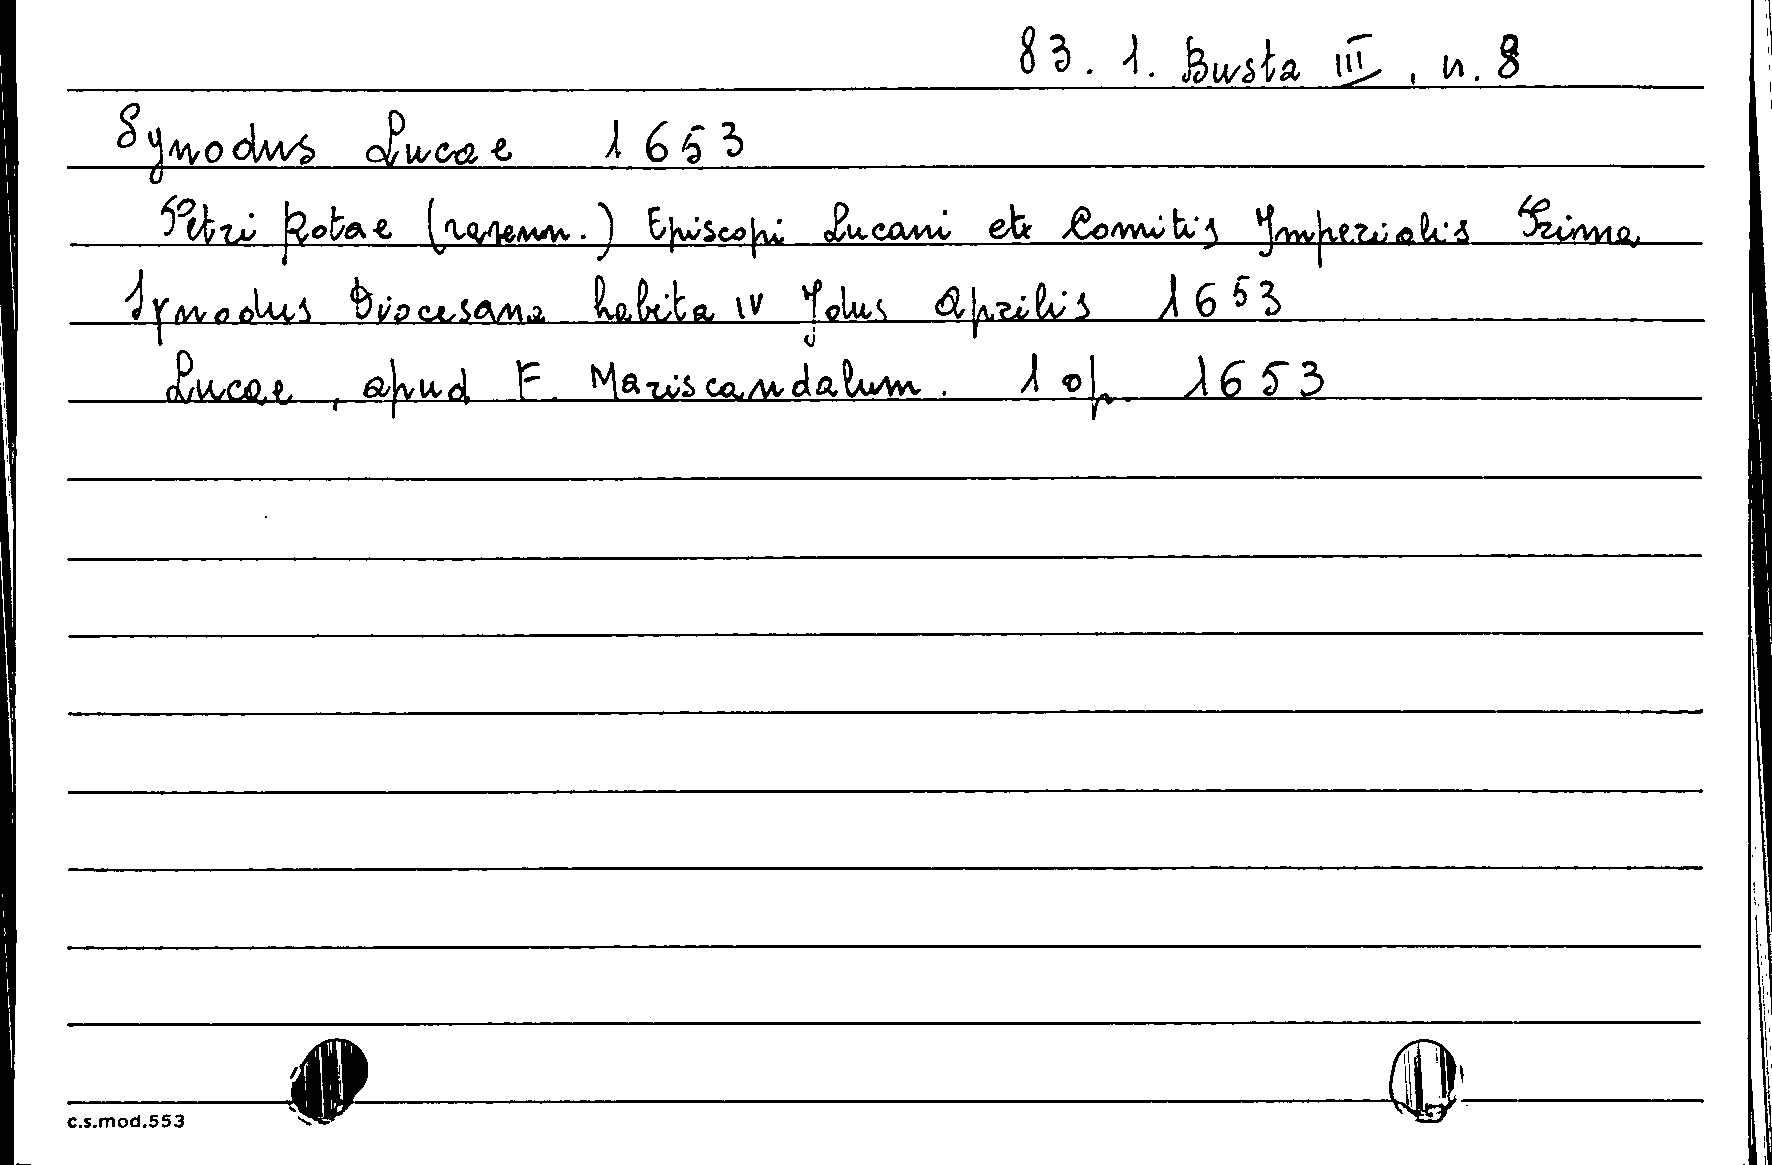 83. 1. Busta III, n. 8
Synodus Lucae 1653
Petri Rotae (ravenn.) Episcopi Lucani et Comitis Imperialis Prima
Synodus Diocesana habita IV Idus Aprilis 1653
Lucae, apud F. Mariscandalum. 1 op. 1653
c.s.mod.553